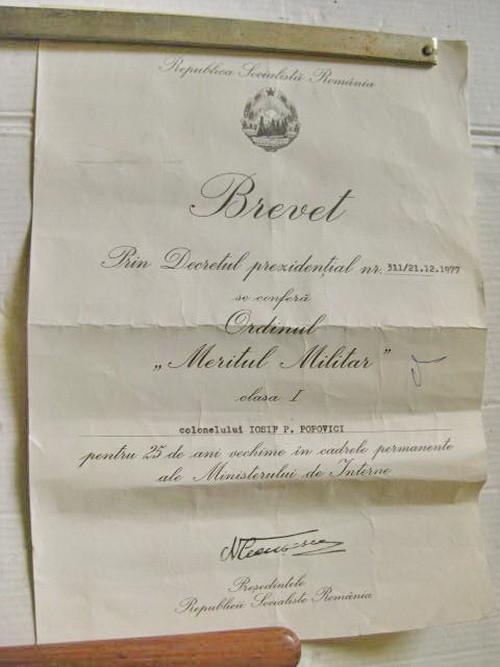 Republica Socialistă România
Brevet
Prin Decretul prezidențial nr. 311/21.12.1977
se conferă
Ordinul
„Meritul Militar”
clasa I
colonelului IOSIF P. POPOVICI
pentru 25 de ani vechime în cadrele permanente
ale Ministerului de Interne
NCeaușescu
Președintele
Republicii Socialiste România